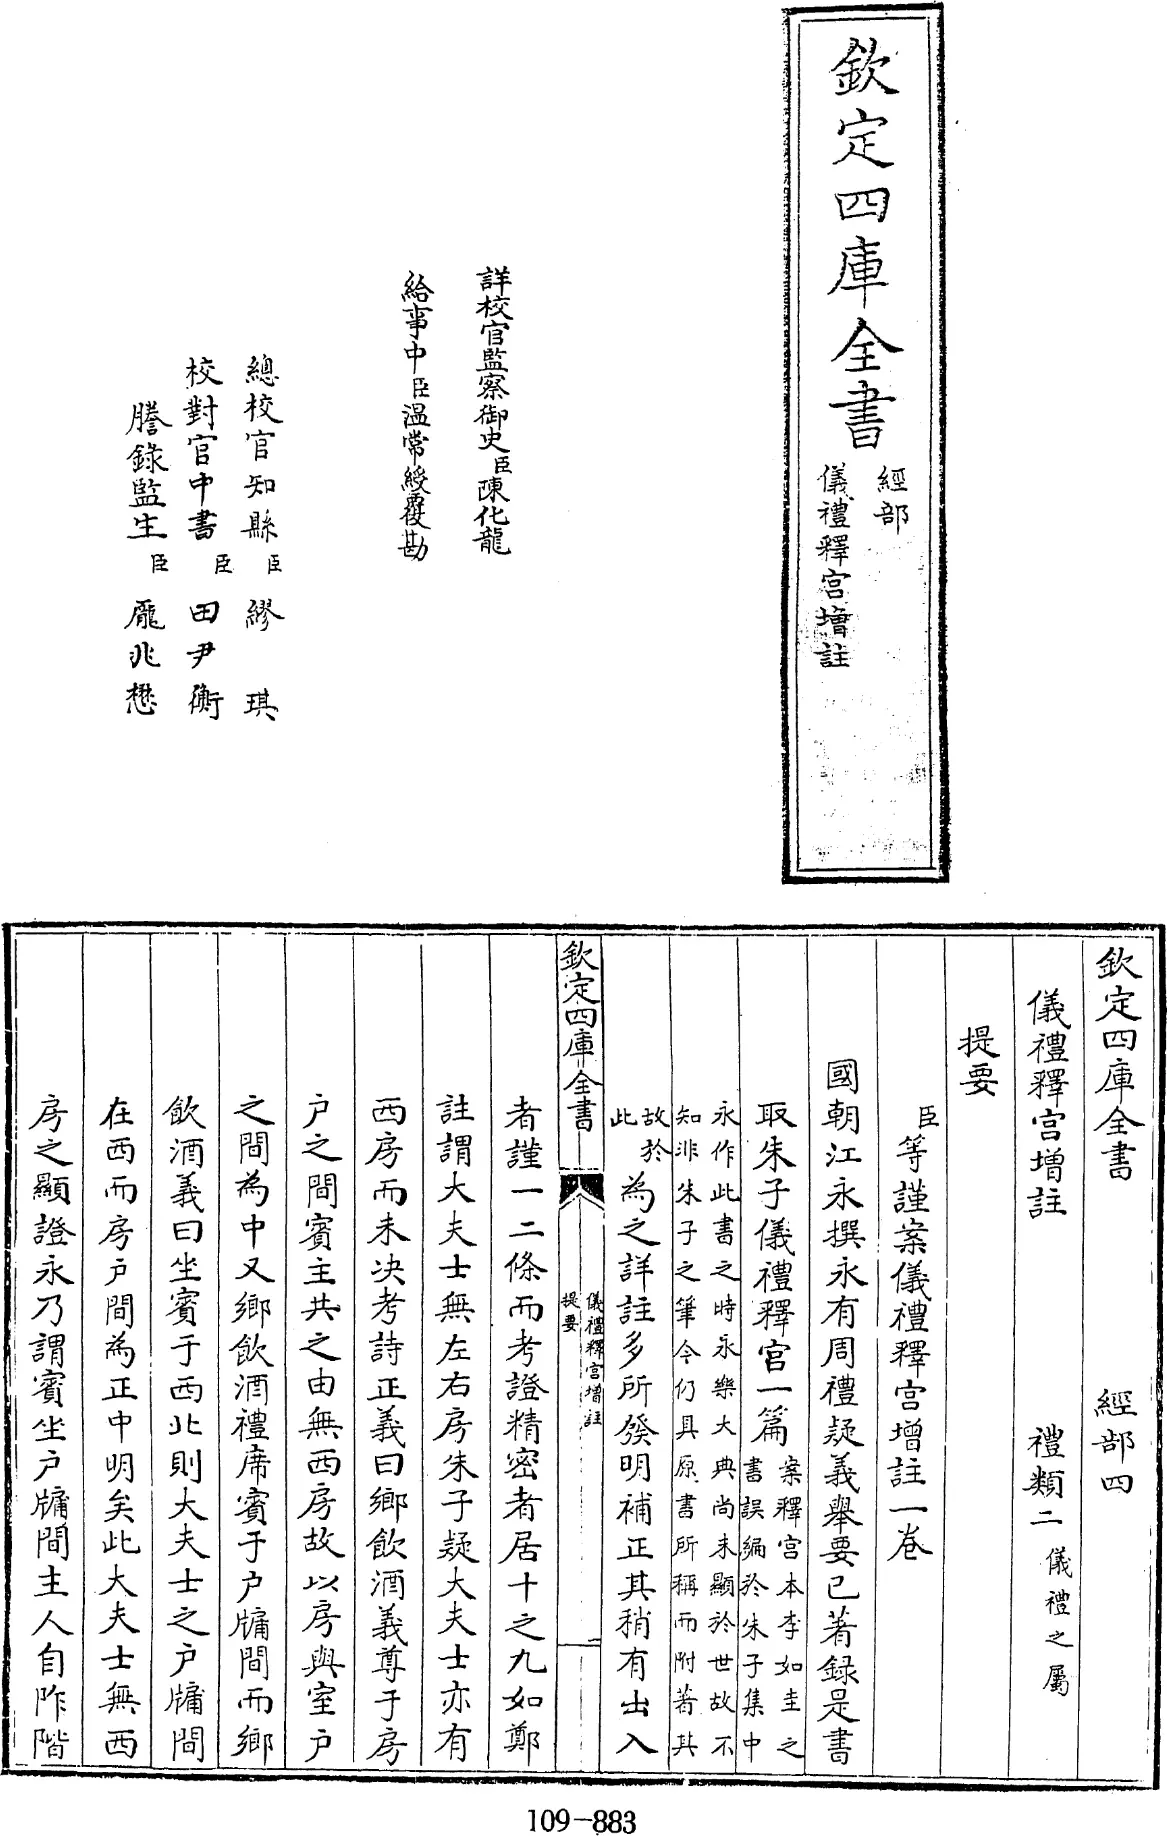 欽定四庫全書
經部
儀禮釋宫增註
詳校官監察御史臣陳化龍
給事中臣温常綬覆勘
總校官知縣臣繆琪
校對官中書臣田尹衡
謄錄監生臣龐兆懋
欽定四庫全書 經部四
儀禮釋宫增註 禮類二儀禮之屬
提要
臣等謹案儀禮釋宫增註一卷
國朝江永撰永有周禮疑義舉要已著録是書
取朱子儀禮釋宫一篇案釋宫本李如圭之書誤編於朱子集中
永作此書之時永樂大典尚未顯於世故不
知非朱子之筆今仍具原書所稱而附著其
故於此為之詳註多所發明補正其稍有出入
欽定四庫全書
儀禮釋宫增註
提要
者謹一二條而考證精密者居十之九如鄭
註謂大夫士無左右房朱子疑大夫士亦有
西房而未决考詩正義曰鄉飲酒義尊于房
户之間賓主共之由無西房故以房與室户
之間為中又鄉飲酒禮席賓于户牖間而鄉
飲酒義曰坐賓于西北則大夫士之户牖間
在西而房户間為正中明矣此大夫士無西
房之顯證永乃謂賓坐户牖間主人自阼階
109-883